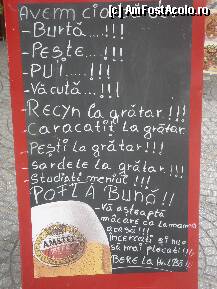 (c) AmFostAcolo.ro
Avem cio
-Burtă...!!!
-Pește...!!!
-PUI.....!!!
-Văcuță...!!!
-Recyn la grătar!!!
-Caracatiț la grătar
-Pești la grătar!!!
-sardele la grătar!!!
-Studiați meniul!!!
POFTĂ Bună!!
-Vă așteaptă
mâcare ca la mama
acasă!!!
Încercați și nu o
să mai plecați!!
BERE la
AMSTEL